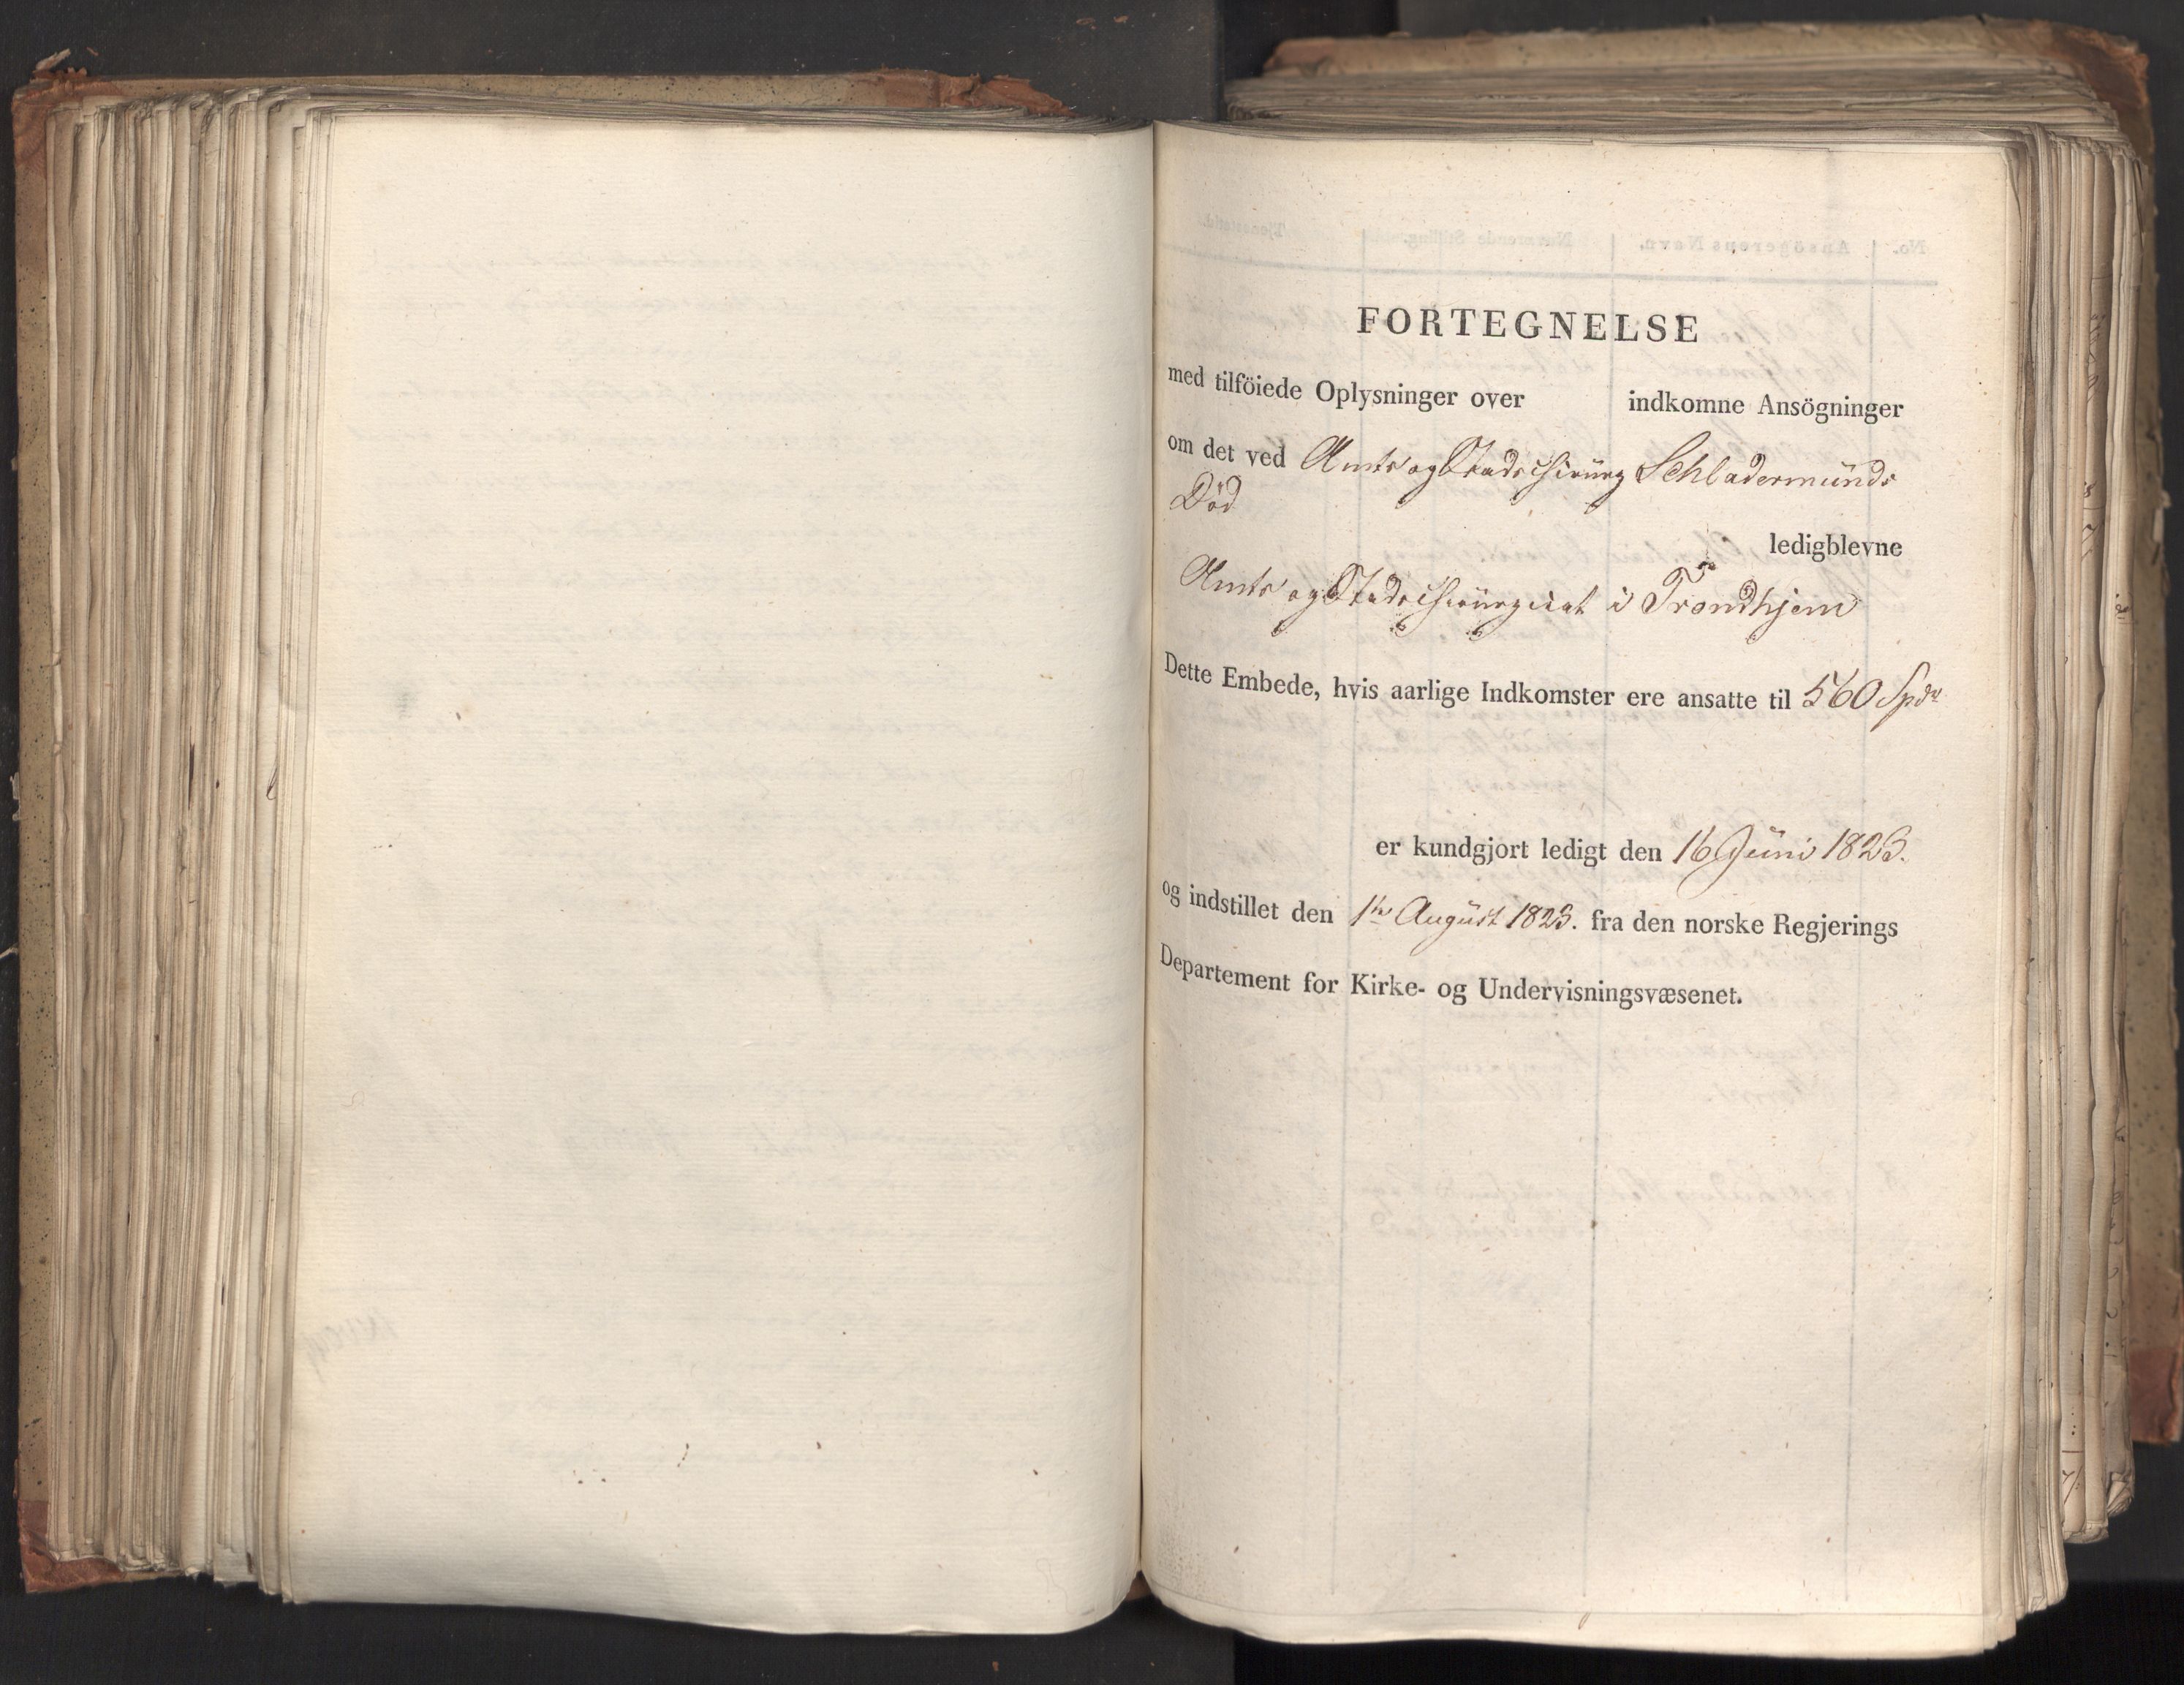 FORTEGNELSE
med tilföiede Oplysninger over indkomne Ansögninger
om det ved Amts og Stadschirurg Schladermunds
Död
ledigblevne
Amts og Stadschirurgicat i Trondhjem
Dette Embede, hvis aarlige Indkomster ere ansatte til 560 Spdr
er kundgjort ledigt den 16 Juni 1823.
og indstillet den 1te August 1823. fra den norske Regjerings
Departement for Kirke- og Undervisningsvæsenet.